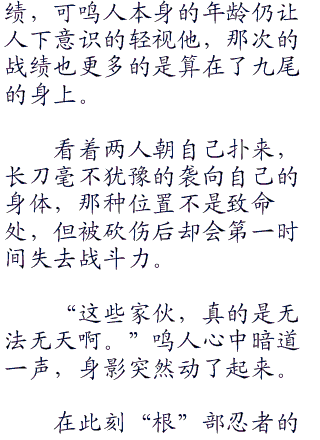 绩，可鸣人本身的年龄仍让
人下意识的轻视他，那次的
战绩也更多的是算在了九尾
的身上。
看着两人朝自己扑来，
长刀毫不犹豫的袭向自己的
身体，那种位置不是致命
处，但被砍伤后却会第一时
间失去战斗力。
“这些家伙，真的是无
法无天啊。”鸣人心中暗道
一声，身影突然动了起来。
在此刻“根”部忍者的